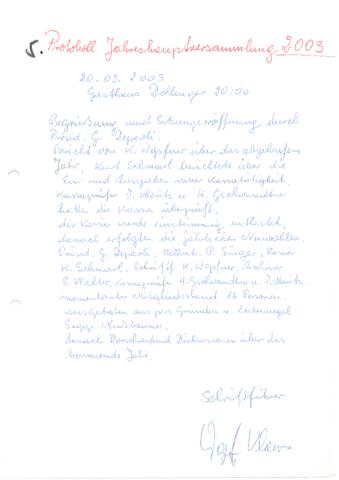 5. Protokoll Jahreshauptversammlung 2003
20.03.2003
Gasthaus Dollinger 20:00
Begrüßung und Sitzungseröffnung durch
Präsid. G. Depaoli.
Bericht von K. Wepfner über das abgelaufene
Jahr, Kurt Schmarl berichtete über die
Ein- und Ausgaben seiner Kassatätigkeit.
Kassaprüfer D. Moritz u. H. Gschwandtner
hatten die Kassa überprüft,
der Kassier wurde einstimmig entlastet,
danach erfolgten die jährlichen Neuwahlen,
Präsid. G. Depaoli, Stellvert. P. Singer, Kassier
K. Schmarl, Schriftf. K. Wepfner,
S. Walter, Kassaprüfer H. Gschwandtner u. D. Moritz
momentaner Mitgliedsstand 16 Personen.
ausgetreten aus pers. Gründen u. Zeitmangel
danach Vorschau und Diskussion über das
kommende Jahr.
Schriftführer